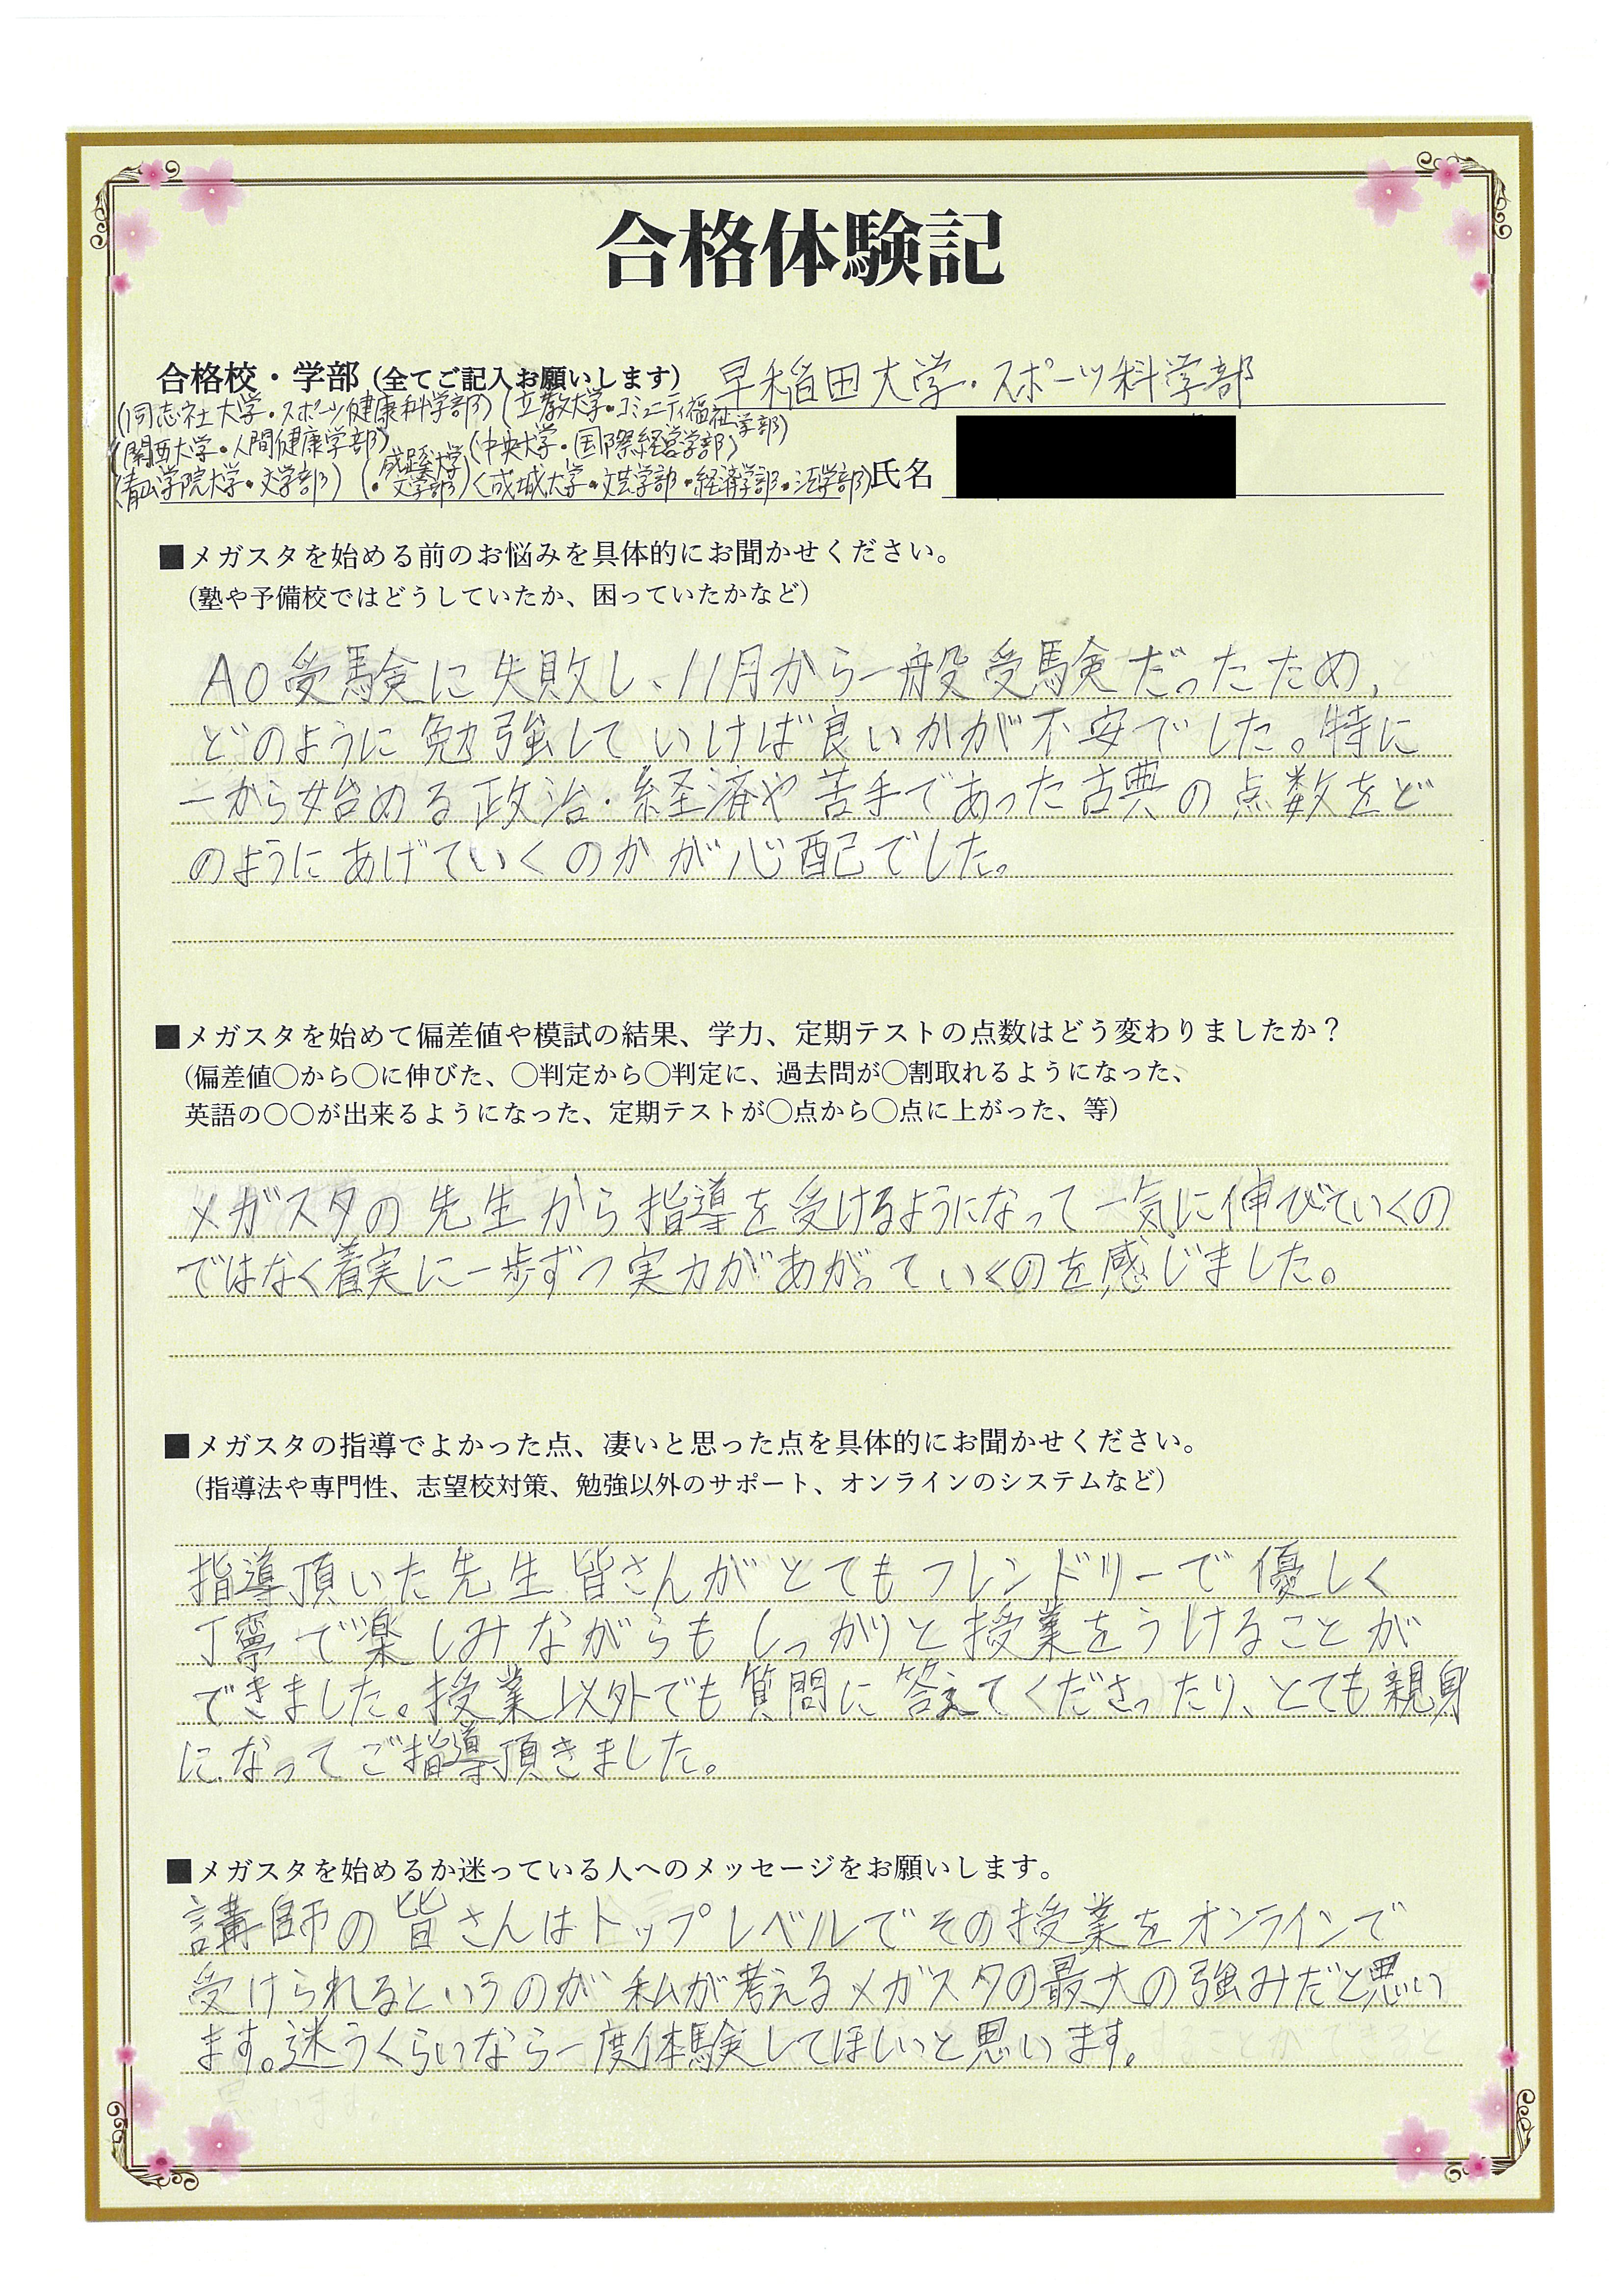 合格体験記
合格校・学部（全てご記入お願いします） 早稲田大学・スポーツ科学部
(同志社大学・スポーツ健康科学部)(立教大学・コミュニティ福祉学部)
(関西大学・人間健康学部)(中央大学・国際経営学部)
(青山学院大学・文学部)(成蹊大学・文学部)(成城大学・文芸学部・経済学部・法学部) 氏名
■メガスタを始める前のお悩みを具体的にお聞かせください。
（塾や予備校ではどうしていたか、困っていたかなど）
AO受験に失敗し、11月から一般受験だったため,
どのように勉強していけば良いかが不安でした。特に
一から始める政治・経済や苦手であった古典の点数をど
のようにあげていくのかが心配でした。
■メガスタを始めて偏差値や模試の結果、学力、定期テストの点数はどう変わりましたか？
（偏差値〇から〇に伸びた、〇判定から〇判定に、過去問が〇割取れるようになった、
英語の〇〇が出来るようになった、定期テストが〇点から〇点に上がった、等）
メガスタの先生から指導を受けるようになって一気に伸びていくの
ではなく着実に一歩ずつ実力があがっていくのを感じました。
■メガスタの指導でよかった点、凄いと思った点を具体的にお聞かせください。
（指導法や専門性、志望校対策、勉強以外のサポート、オンラインのシステムなど）
指導頂いた先生皆さんがとてもフレンドリーで優しく
丁寧で楽しみながらもしっかりと授業をうけることが
できました。授業以外でも質問に答えてくださったり、とても親身
になってご指導頂きました。
■メガスタを始めるか迷っている人へのメッセージをお願いします。
講師の皆さんはトップレベルでその授業をオンラインで
受けられるというのが私が考えるメガスタの最大の強みだと思い
ます。迷うくらいなら一度体験してほしいと思います。